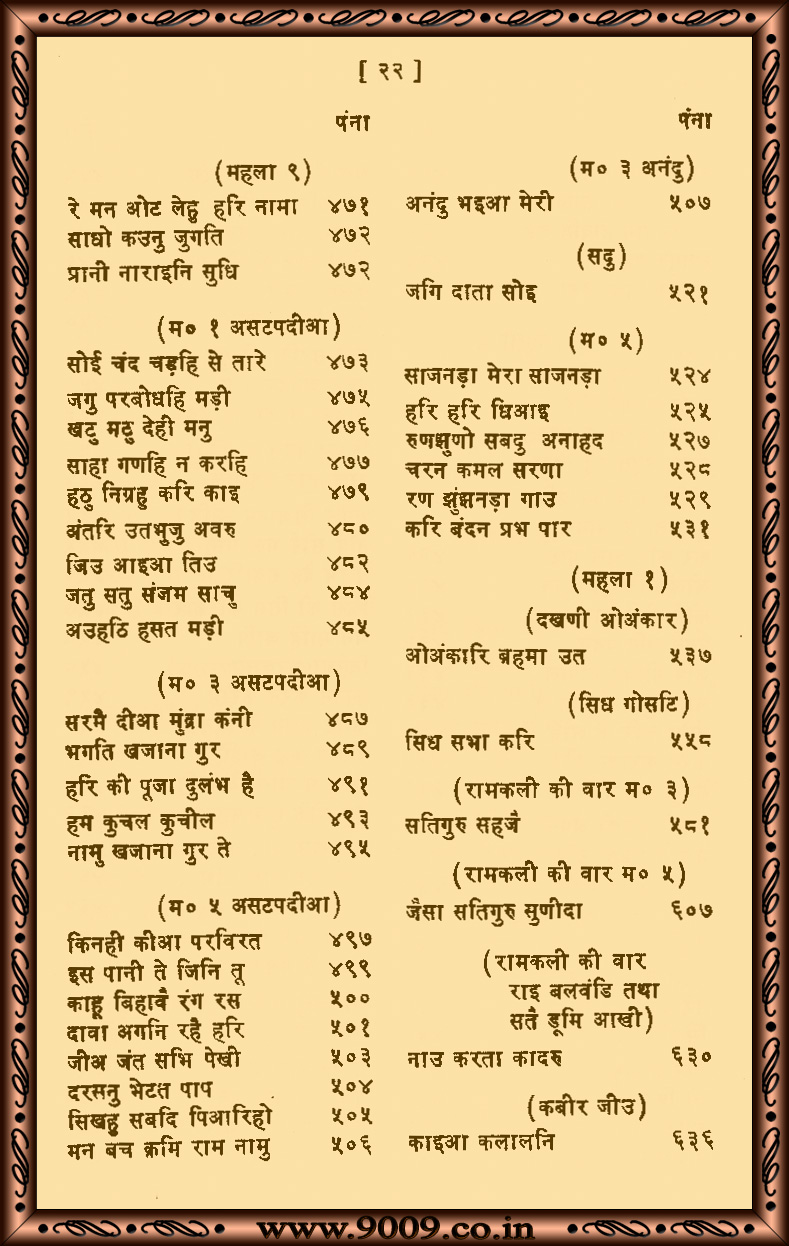 [ २२ ]
पंना
(महला ९)
रे मन ओट लेहु हरि नामा ४७१
साधो कउनु जुगति ४७२
प्रानी नाराइनि सुधि ४७२
(म० १ असटपदीआ)
सोई चंद चड़हि से तारे ४७३
जगु परबोधहि मड़ी ४७५
खटु मठु देही मनु ४७६
साहा गणहि न करहि ४७७
हठु निग्रहु करि काइ ४७९
अंतरि उतभुजु अवरु ४८०
जिउ आइआ तिउ ४८२
जतु सतु संजम साचु ४८४
अउहठि हसत मड़ी ४८५
(म० ३ असटपदीआ)
सरमै दीआ मुंद्रा कंनी ४८७
भगति खजाना गुर ४८९
हरि की पूजा दुलंभ है ४९१
हम कुचल कुचील ४९३
नामु खजाना गुर ते ४९५
(म० ५ असटपदीआ)
किनही कीआ परविरत ४९७
इस पानी ते जिनि तू ४९९
काहू बिहावै रंग रस ५००
दावा अगनि रहै हरि ५०१
जीअ जंत सभि पेखी ५०३
दरसनु भेटत पाप ५०४
सिखहु सबदि पिआरिहो ५०५
मन बच क्रमि राम नामु ५०६
पंना
(म० ३ अनंदु)
अनंदु भइआ मेरी ५०७
(सदु)
जगि दाता सोइ ५२१
(म० ५)
साजनड़ा मेरा साजनड़ा ५२४
हरि हरि धिआइ ५२५
रुणझुणो सबदु अनाहद ५२७
चरन कमल सरणा ५२८
रण झुंझनड़ा गाउ ५२९
करि बंदन प्रभ पार ५३१
(महला १)
(दखणी ओअंकार)
ओअंकारि ब्रहमा उत ५३७
(सिध गोसटि)
सिध सभा करि ५५८
(रामकली की वार म० ३)
सतिगुरु सहजै ५८१
(रामकली की वार म० ५)
जैसा सतिगुरु सुणीदा ६०७
(रामकली की वार
राइ बलवंडि तथा
सतै डूमि आखी)
नाउ करता कादरु ६३०
(कबीर जीउ)
काइआ कलालनि ६३६
www.9009.co.in